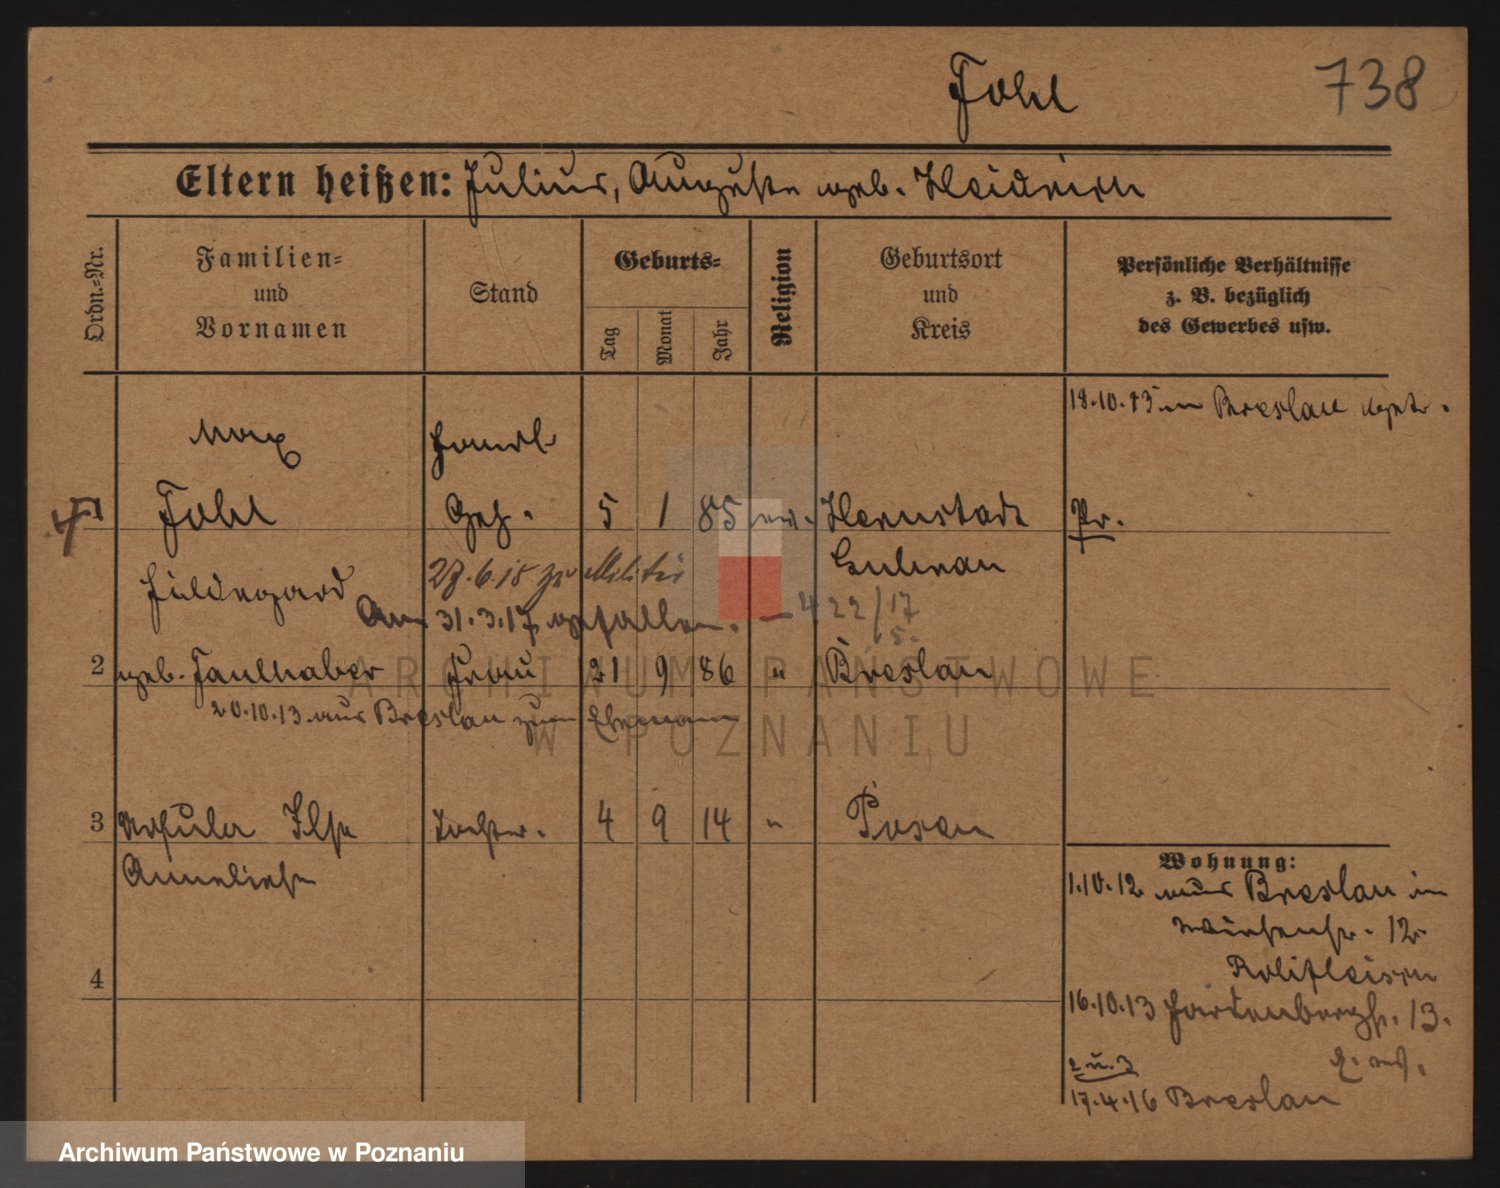 Fohl 738
Eltern heißen: Julius, Auguste geb. Heidrich
Ordn.-Nr.
Familien- und Vornamen
Stand
Geburts-
Tag Monat Jahr
Religion
Geburtsort und Kreis
Persönliche Verhältnisse z. B. bezüglich des Gewerbes usw.
18.10.13 in Breslau getr.
Max Handl.
Fohl Geh. 5 1 85 ev. Herrnstadt Pr.
Guhrau
Hildegard 27.6.15 zu Militär
Am 31.3.17 gefallen. – 422/17
5.
2 geb. Faulhaber Frau 21 9 86 " Breslau
20.10.13 aus Breslau zum Ehemann
3 Ursula Ilse Tochter. 4 9 14 " Posen
Anneliese
4
Wohnung:
1.10.12 aus Breslau in
12
16.10.13 Hardenbergstr. 13.
2 u. 3
17.4.16 Breslau
ARCHIWUM PAŃSTWOWE
W POZNANIU
Archiwum Państwowe w Poznaniu